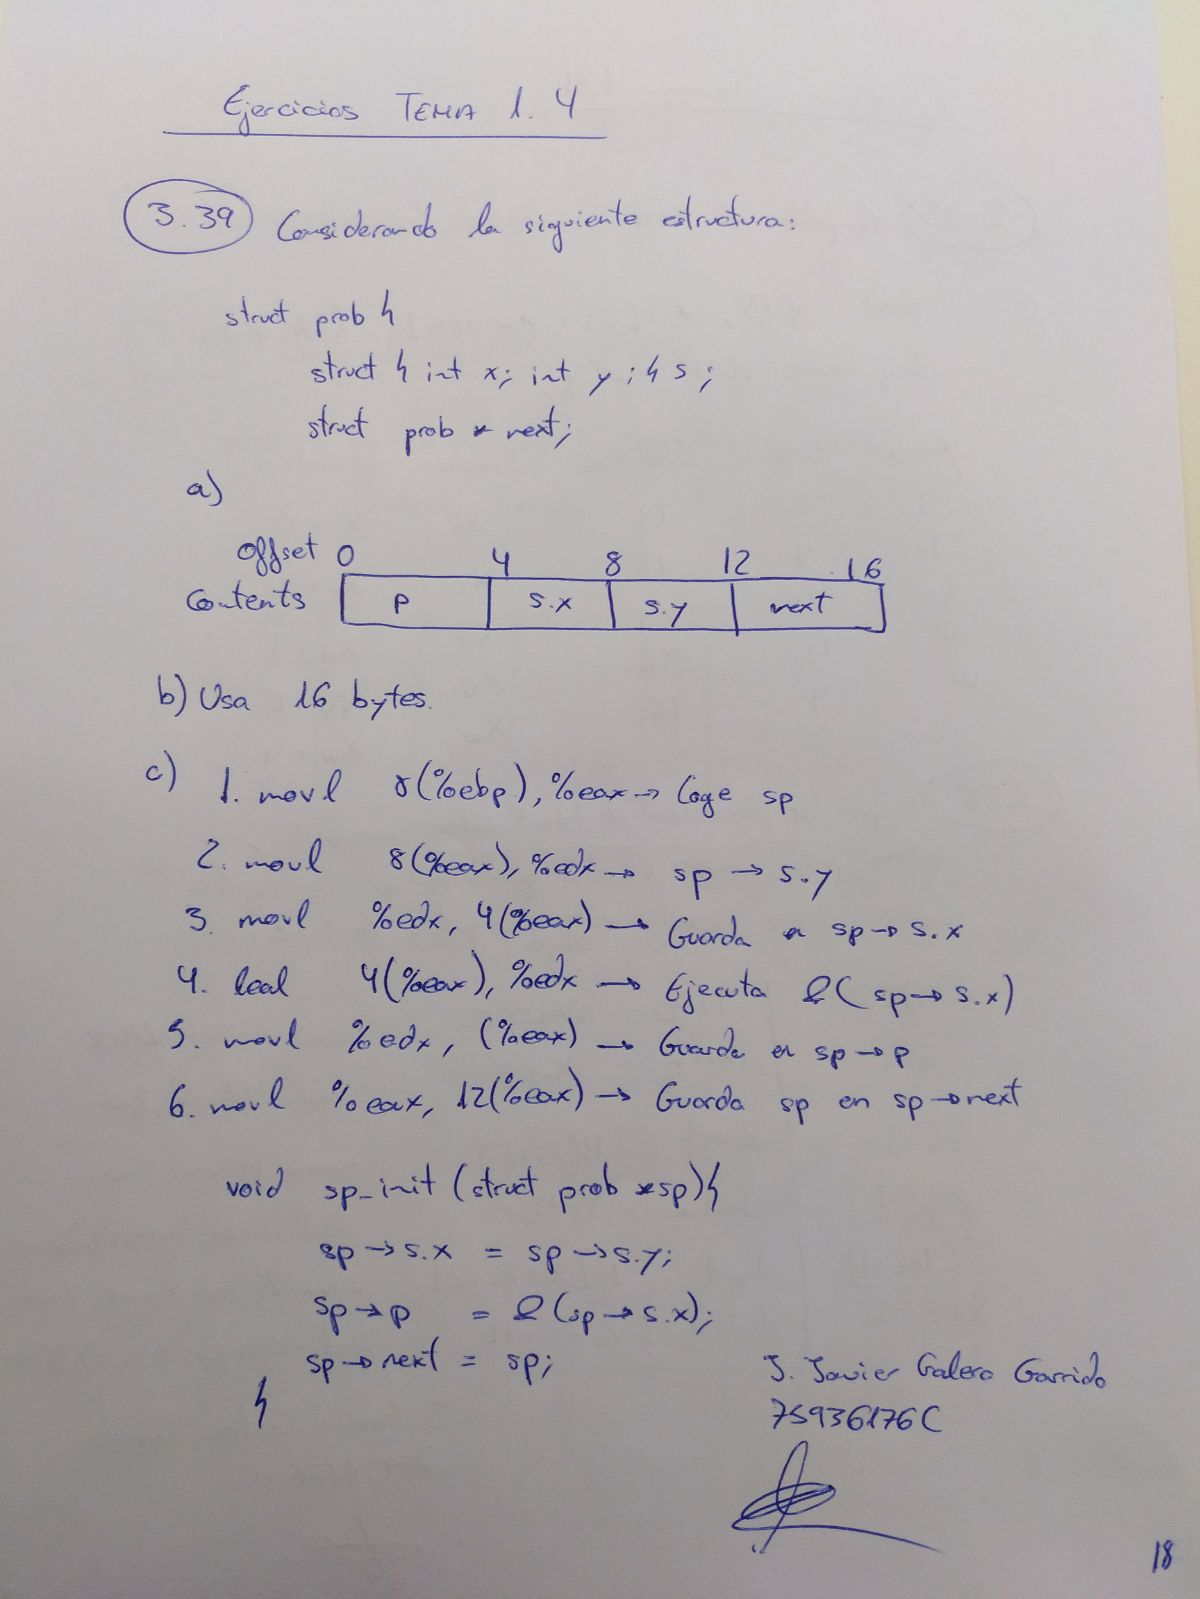 Ejercicios TEMA 1.4
3.39 Considerando la siguiente estructura:
struct prob {
struct { int x; int y; } s;
struct prob * next;
a)
Offset 0 4 8 12 16
Contents p s.x s.y next
b) Usa 16 bytes.
c) 1. movl 8(%ebp), %eax → Coge sp
2. movl 8(%eax), %edx → sp → s.y
3. movl %edx, 4(%eax) → Guarda en sp → s.x
4. leal 4(%eax), %edx → Ejecuta &(sp → s.x)
5. movl %edx, (%eax) → Guarda en sp → p
6. movl %eax, 12(%eax) → Guarda sp en sp → next
void sp_init (struct prob *sp){
sp → s.x = sp → s.y;
sp → p = &(sp → s.x);
sp → next = sp;
}
J. Javier Galera Garrido
75936176C
18